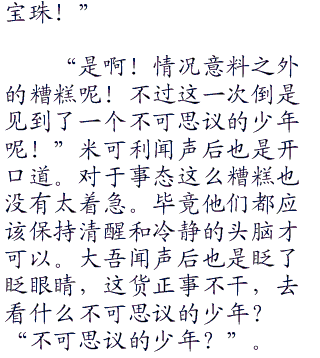 宝珠！”
“是啊！情况意料之外
的糟糕呢！不过这一次倒是
见到了一个不可思议的少年
呢！”米可利闻声后也是开
口道。对于事态这么糟糕也
没有太着急。毕竟他们都应
该保持清醒和冷静的头脑才
可以。大吾闻声后也是眨了
眨眼睛，这货正事不干，去
看什么不可思议的少年？
“不可思议的少年？”。